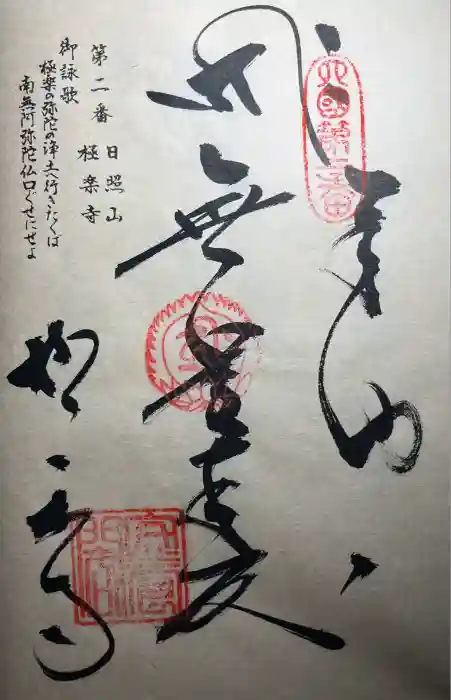 四国第二番
奉納
無量寿
第二番 日照山
極楽寺
御詠歌
極楽の弥陀の浄土へ行きたくば
南無阿弥陀仏口ぐせにせよ
極楽寺